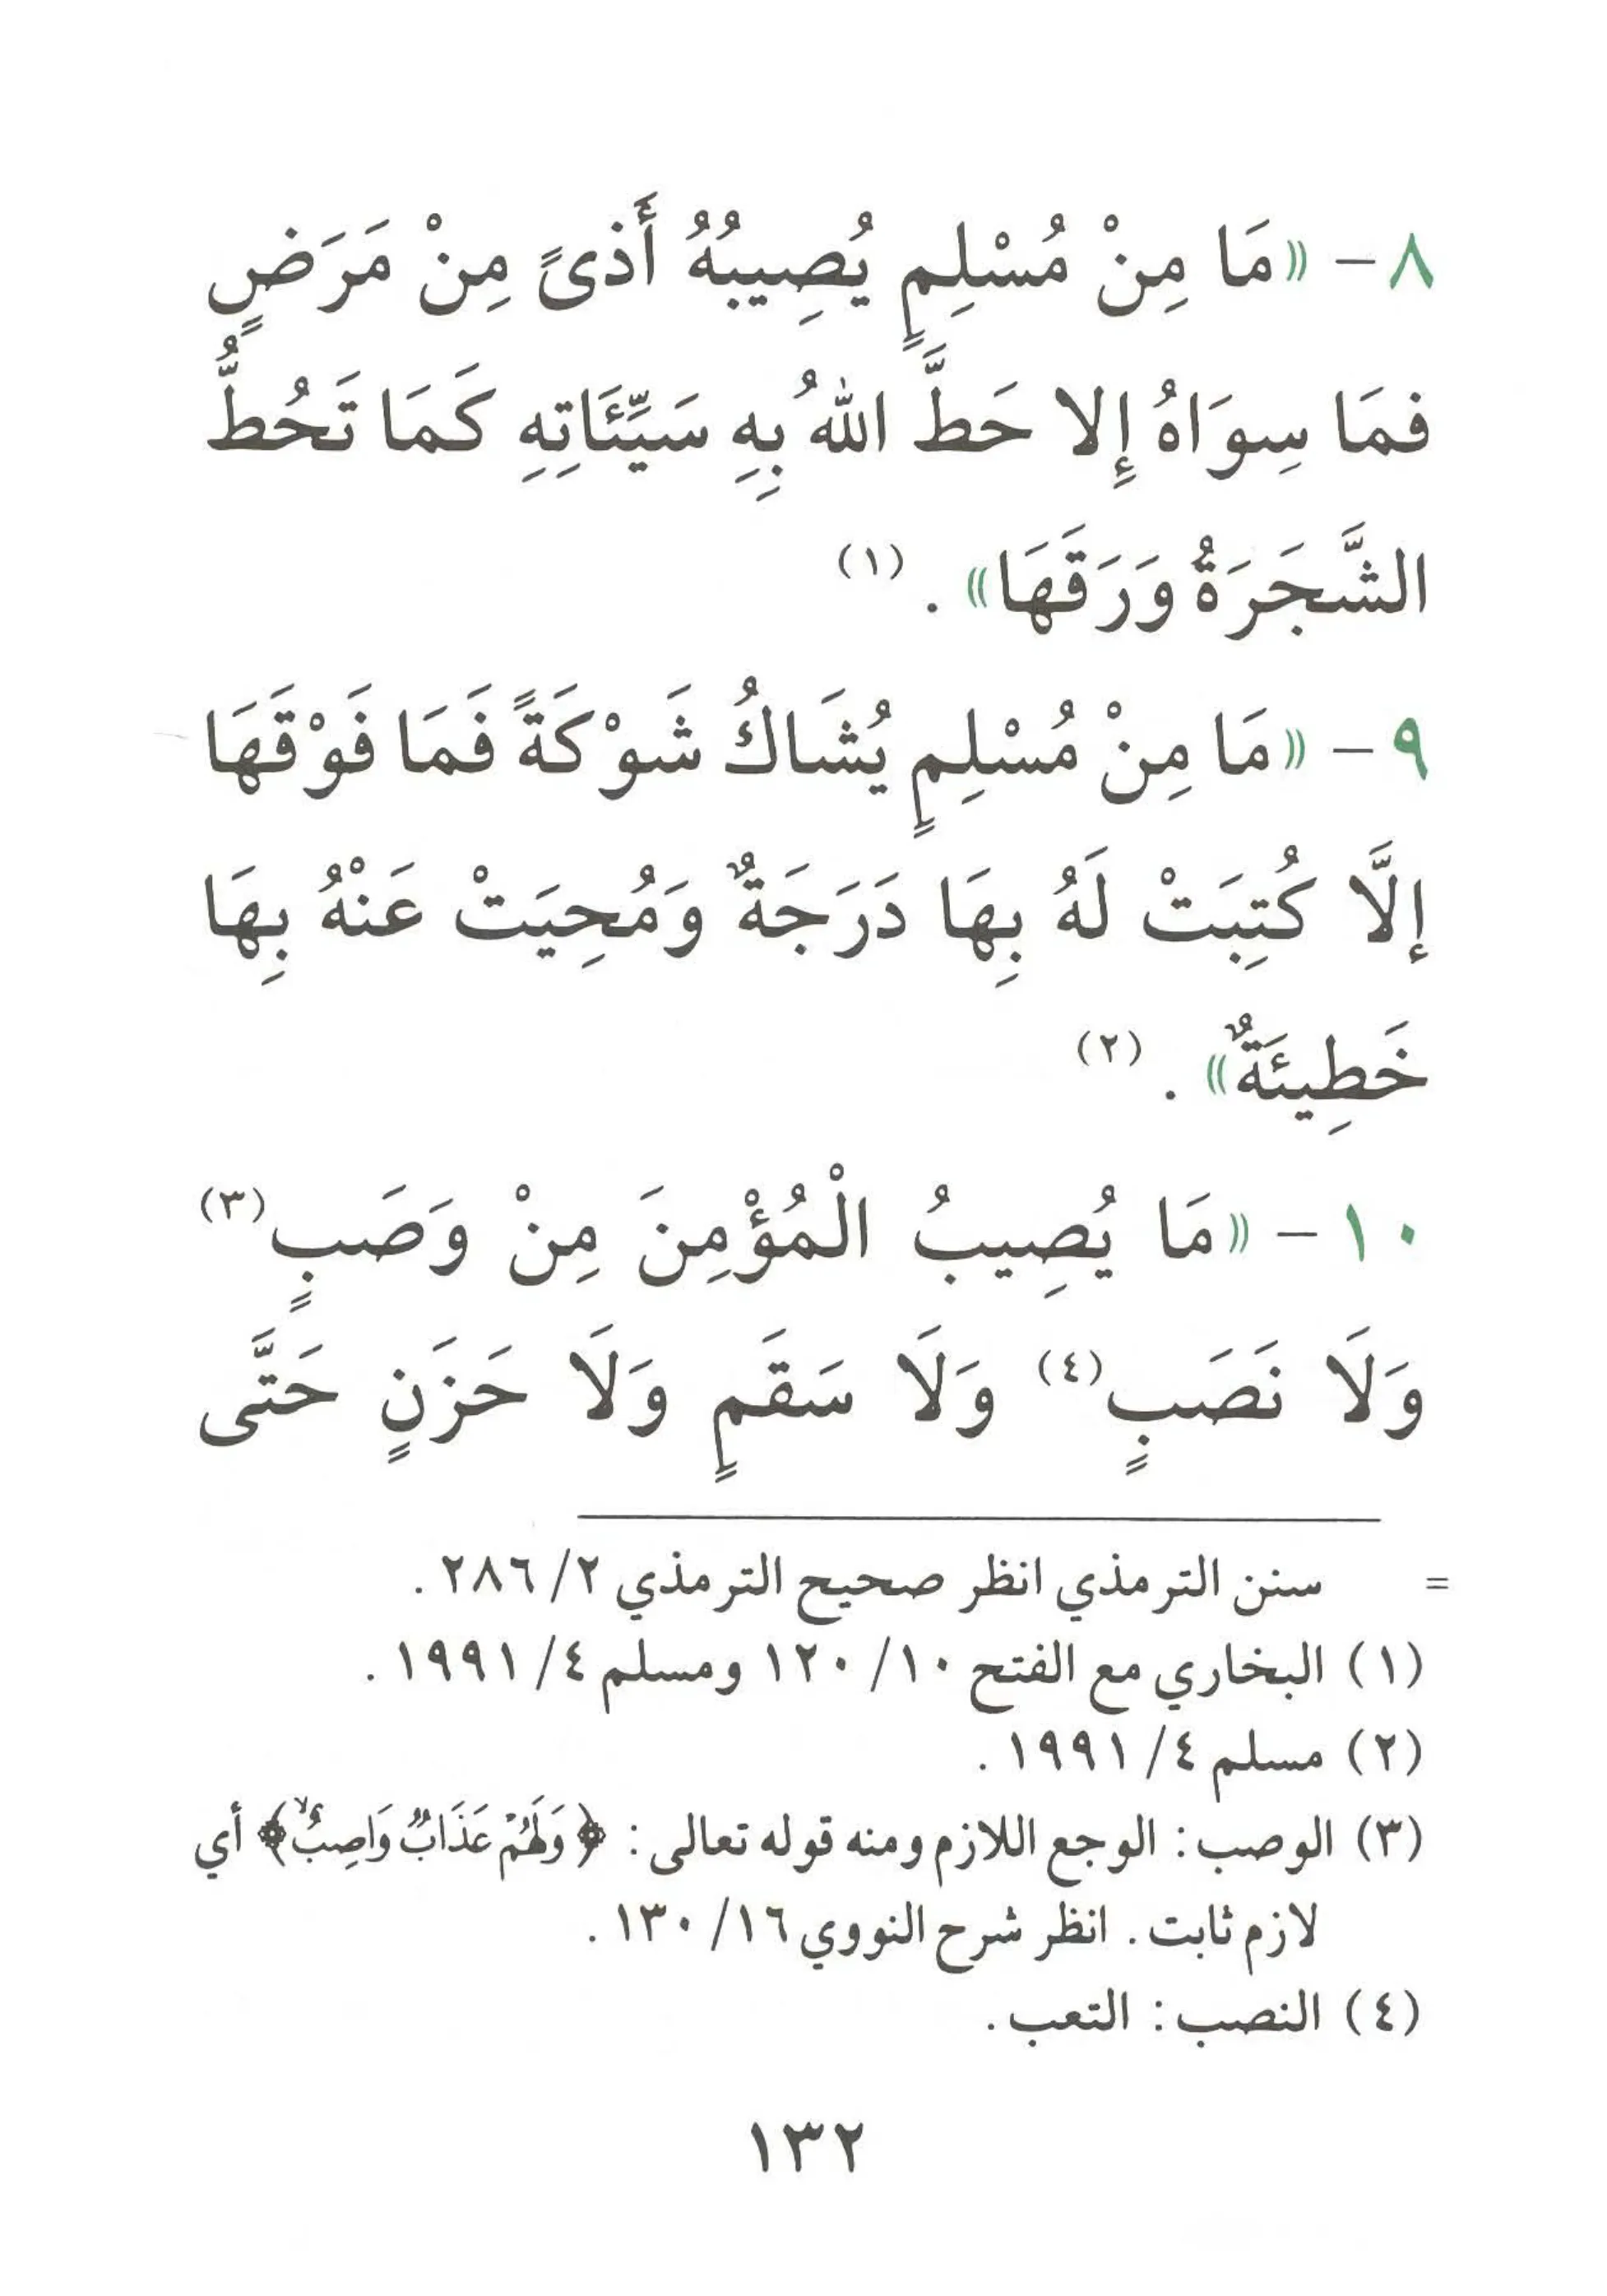 ٨ – «مَا مِنْ مُسْلِمٍ يُصِيبُهُ أَذىً مِنْ مَرَضٍ
فمَا سِوَاهُ إِلا حَطَّ اللهُ بِهِ سَيِّئَاتِهِ كَمَا تَحُطُّ
الشَّجَرَةُ وَرَقَهَا» . (١)
٩ – «مَا مِنْ مُسْلِمٍ يُشَاكُ شَوْكَةً فَمَا فَوْقَهَا
إلَّا كُتِبَتْ لَهُ بِهَا دَرَجَةٌ وَمُحِيَتْ عَنْهُ بِهَا
خَطِيئَةٌ» . (٢)
١٠ – «مَا يُصِيبُ الْمُؤْمِنَ مِنْ وَصَبٍ(٣)
وَلَا نَصَبٍ(٤) وَلَا سَقَمٍ وَلَا حَزَنٍ حَتَّى
= سنن الترمذي انظر صحيح الترمذي ٢/ ٢٨٦ .
(١) البخاري مع الفتح ١٠/ ١٢٠ ومسلم ٤/ ١٩٩١ .
(٢) مسلم ٤/ ١٩٩١ .
(٣) الوصب : الوجع اللازم ومنه قوله تعالى : ﴿وَلَهُمْ عَذَابٌ وَاصِبٌ﴾ أي
لازم ثابت . انظر شرح النووي ١٦/ ١٣٠ .
(٤) النصب : التعب .
١٣٢